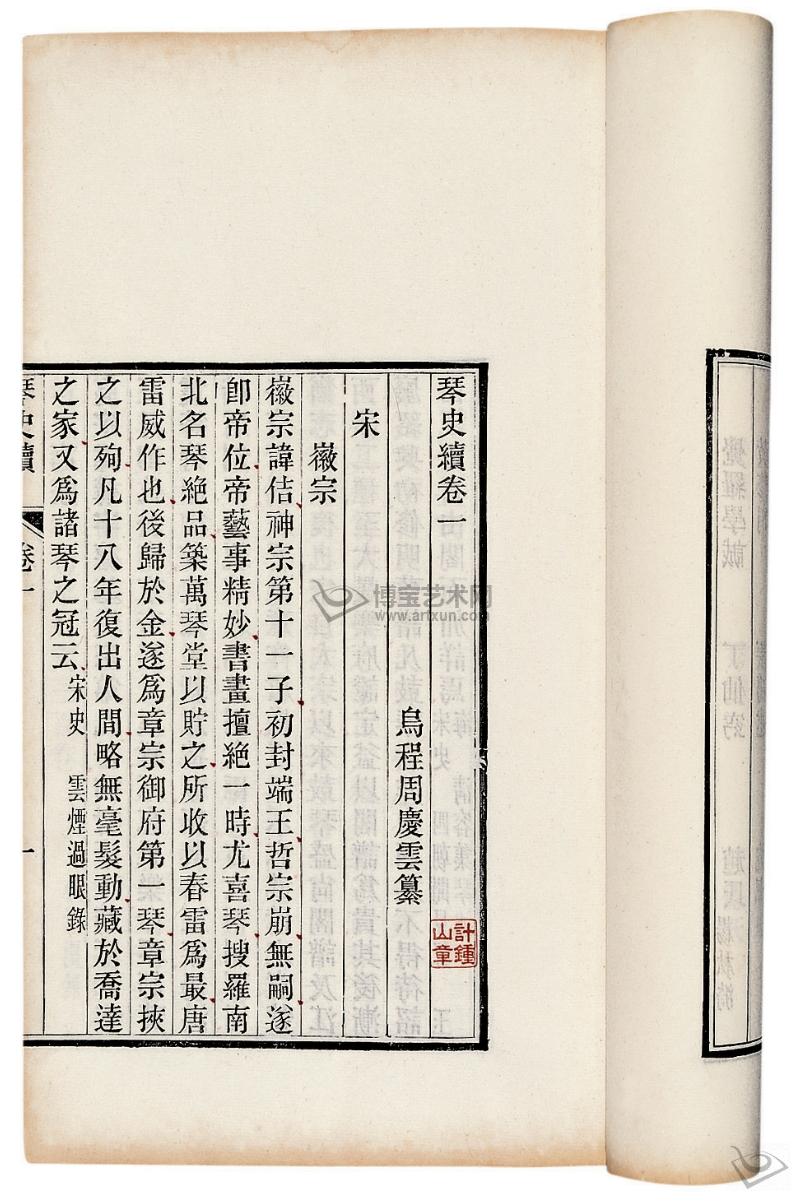 琴史續卷一
烏程周慶雲纂
計鍾山章
宋
徽宗
徽宗諱佶神宗第十一子初封端王哲宗崩無嗣遂
卽帝位帝藝事精妙書畫擅絕一時尤喜琴搜羅南
北名琴絕品築萬琴堂以貯之所收以春雷爲最唐
雷威作也後歸於金遂爲章宗御府第一琴章宗挾
之以殉凡十八年復出人間略無毫髮動藏於喬達
之家又爲諸琴之冠云宋史 雲煙過眼錄
琴史續 卷一 一
博宝艺术网
www.artxun.com